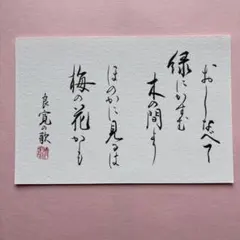 おしなべて
緑にかすむ
木の間より
ほのかに見ゆるは
梅の花かも
良寛の歌